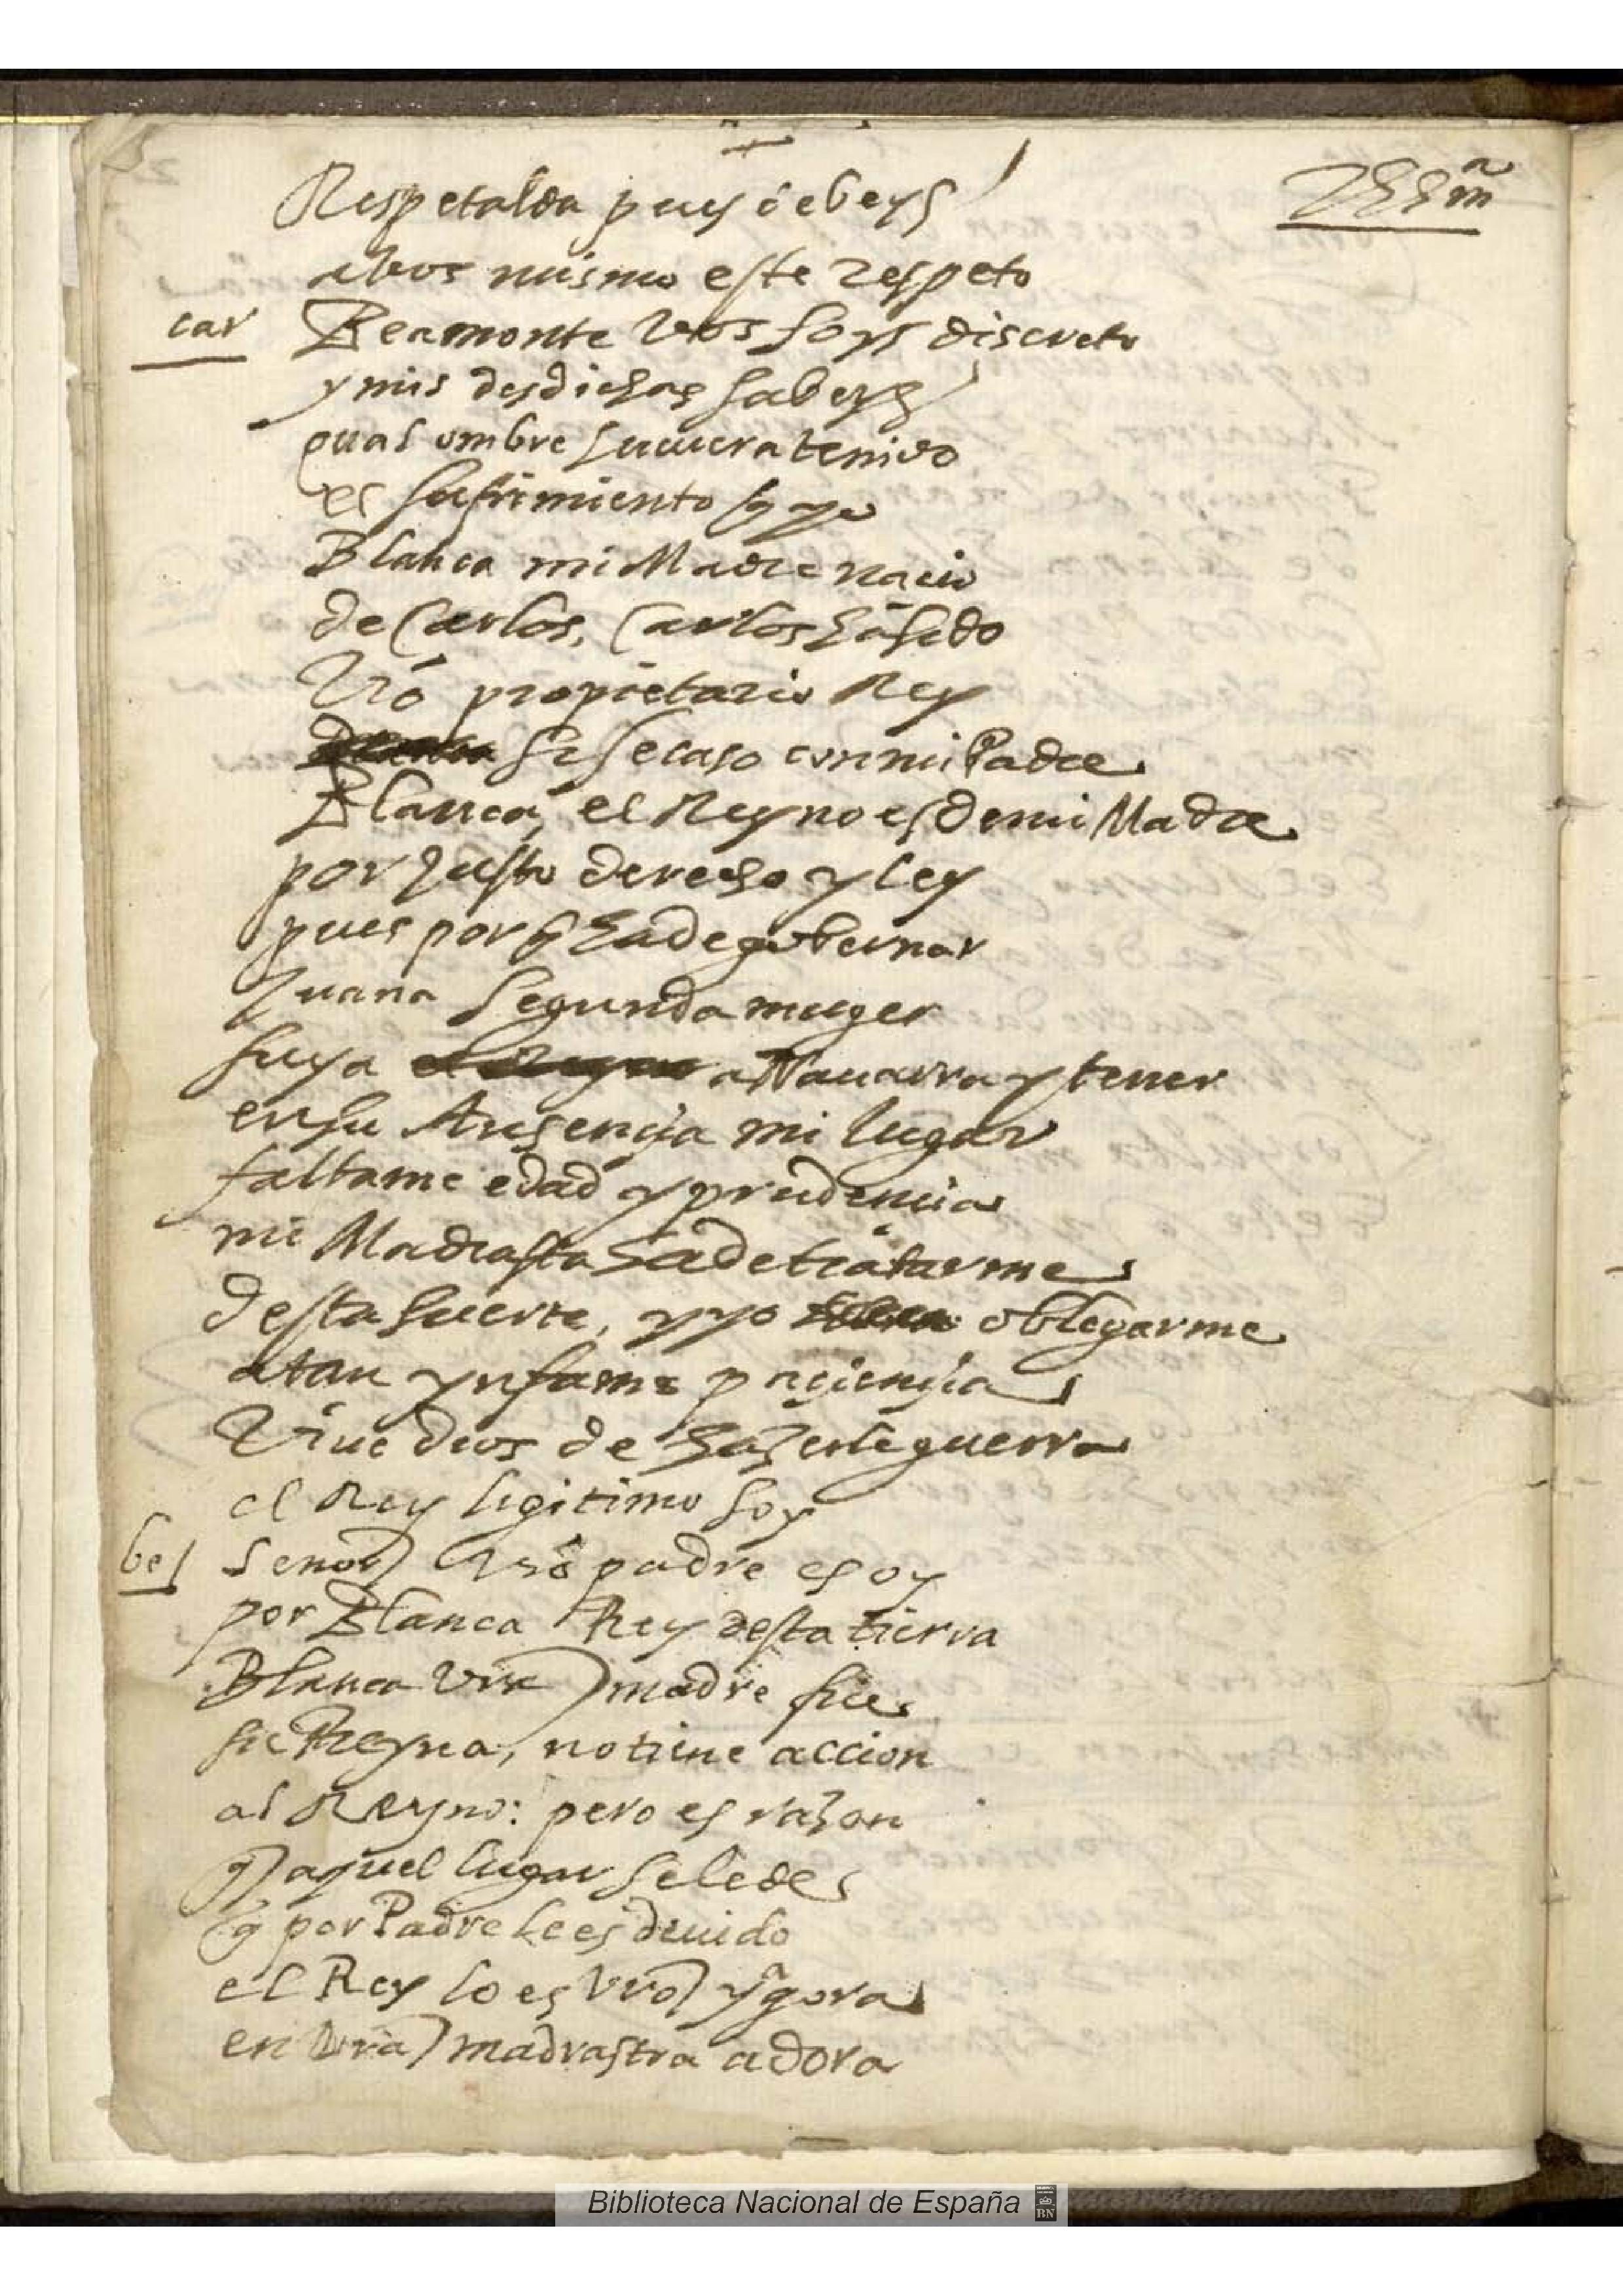 Respetalda pues debeys
a bos mismo este respeto
car Beamonte vos soys discreto
y mis desdichas sabeys
qual ombre huuiera tenido
el sufrimiento q yo
Blanca mi Madre nacio
de Carlos, Carlos ha sido
Vro propietario Rey
si se caso con mi Padre
Blanca, el Reyno es de mi Madre
por justo derecho y ley
pues por q ha de gobernar
Juana segunda muger
suya a Nauarra y tener
en su Ausençia mi lugar
faltame edad y prudencia
mi Madrasta ha de tratarme
desta suerte, y yo obligarme
a tan ynfame paçiençia
Viue dios de hazerle guerra
el Rey ligitimo soy
be Senor Vro padre es oy
por Blanca Rey desta tierra
Blanca vra madre fue
su Reyna, no tiene accion
al Reyno: pero es razon
q aquel lugar se le de
q por Padre le es deuido
el Rey lo es vro y agora
en vra madrastra adora
Biblioteca Nacional de España
BN